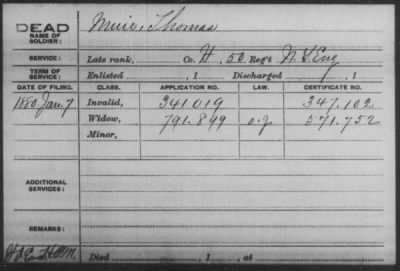 DEAD
NAME OF SOLDIER: Muir, Thomas
SERVICE: Late rank, Co. H, 50 Reg't N.Y. Eng
TERM OF SERVICE: Enlisted , 1 Discharged , 1
DATE OF FILING. CLASS. APPLICATION NO. LAW. CERTIFICATE NO.
1880 Jan. 7 Invalid, 341019 347.102
Widow, 791.899 571.752
Minor,
ADDITIONAL SERVICES:
REMARKS:
Died , 1 , at